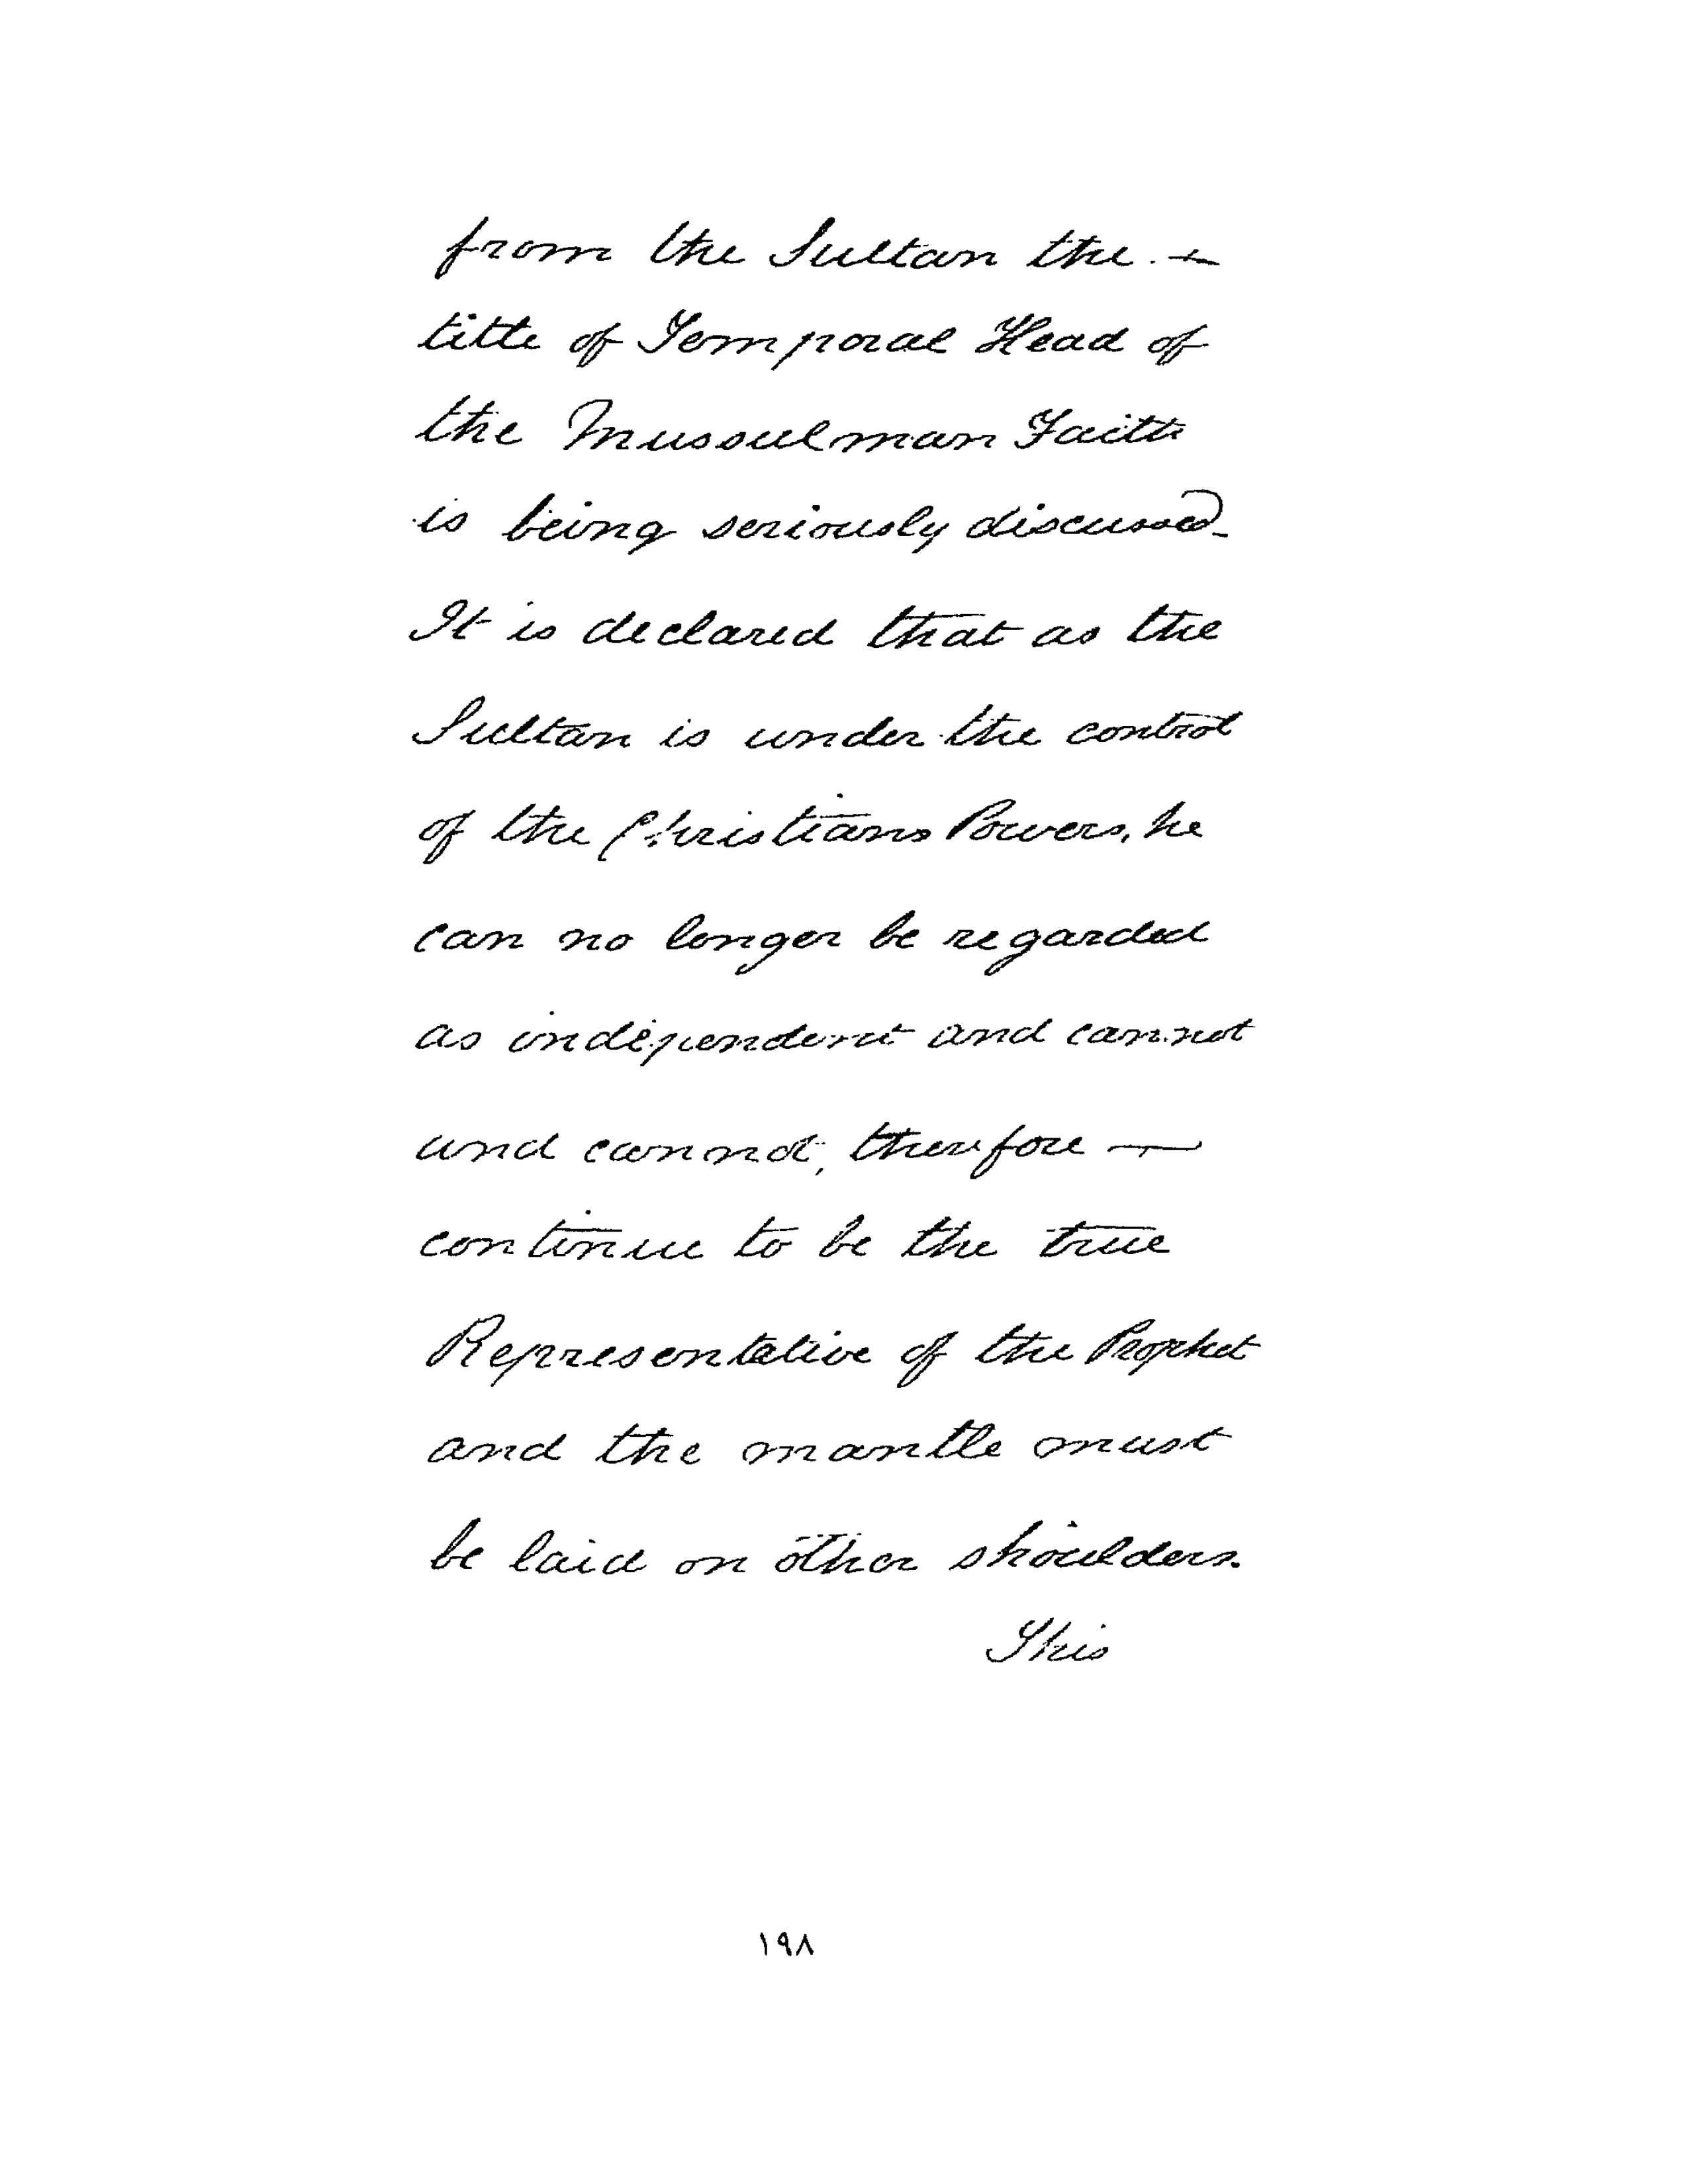 from the Sultan the —
title of Temporal Head of
the Mussulman Faith
is being seriously discussed_
It is declared that as the
Sultan is under the control
of the Christians Powers, he
can no longer be regarded
as independent and cannot
and cannot, therefore —
continue to be the true
Representative of the Prophet
and the mantle must
be laid on other shoulders.
This
١٩٨